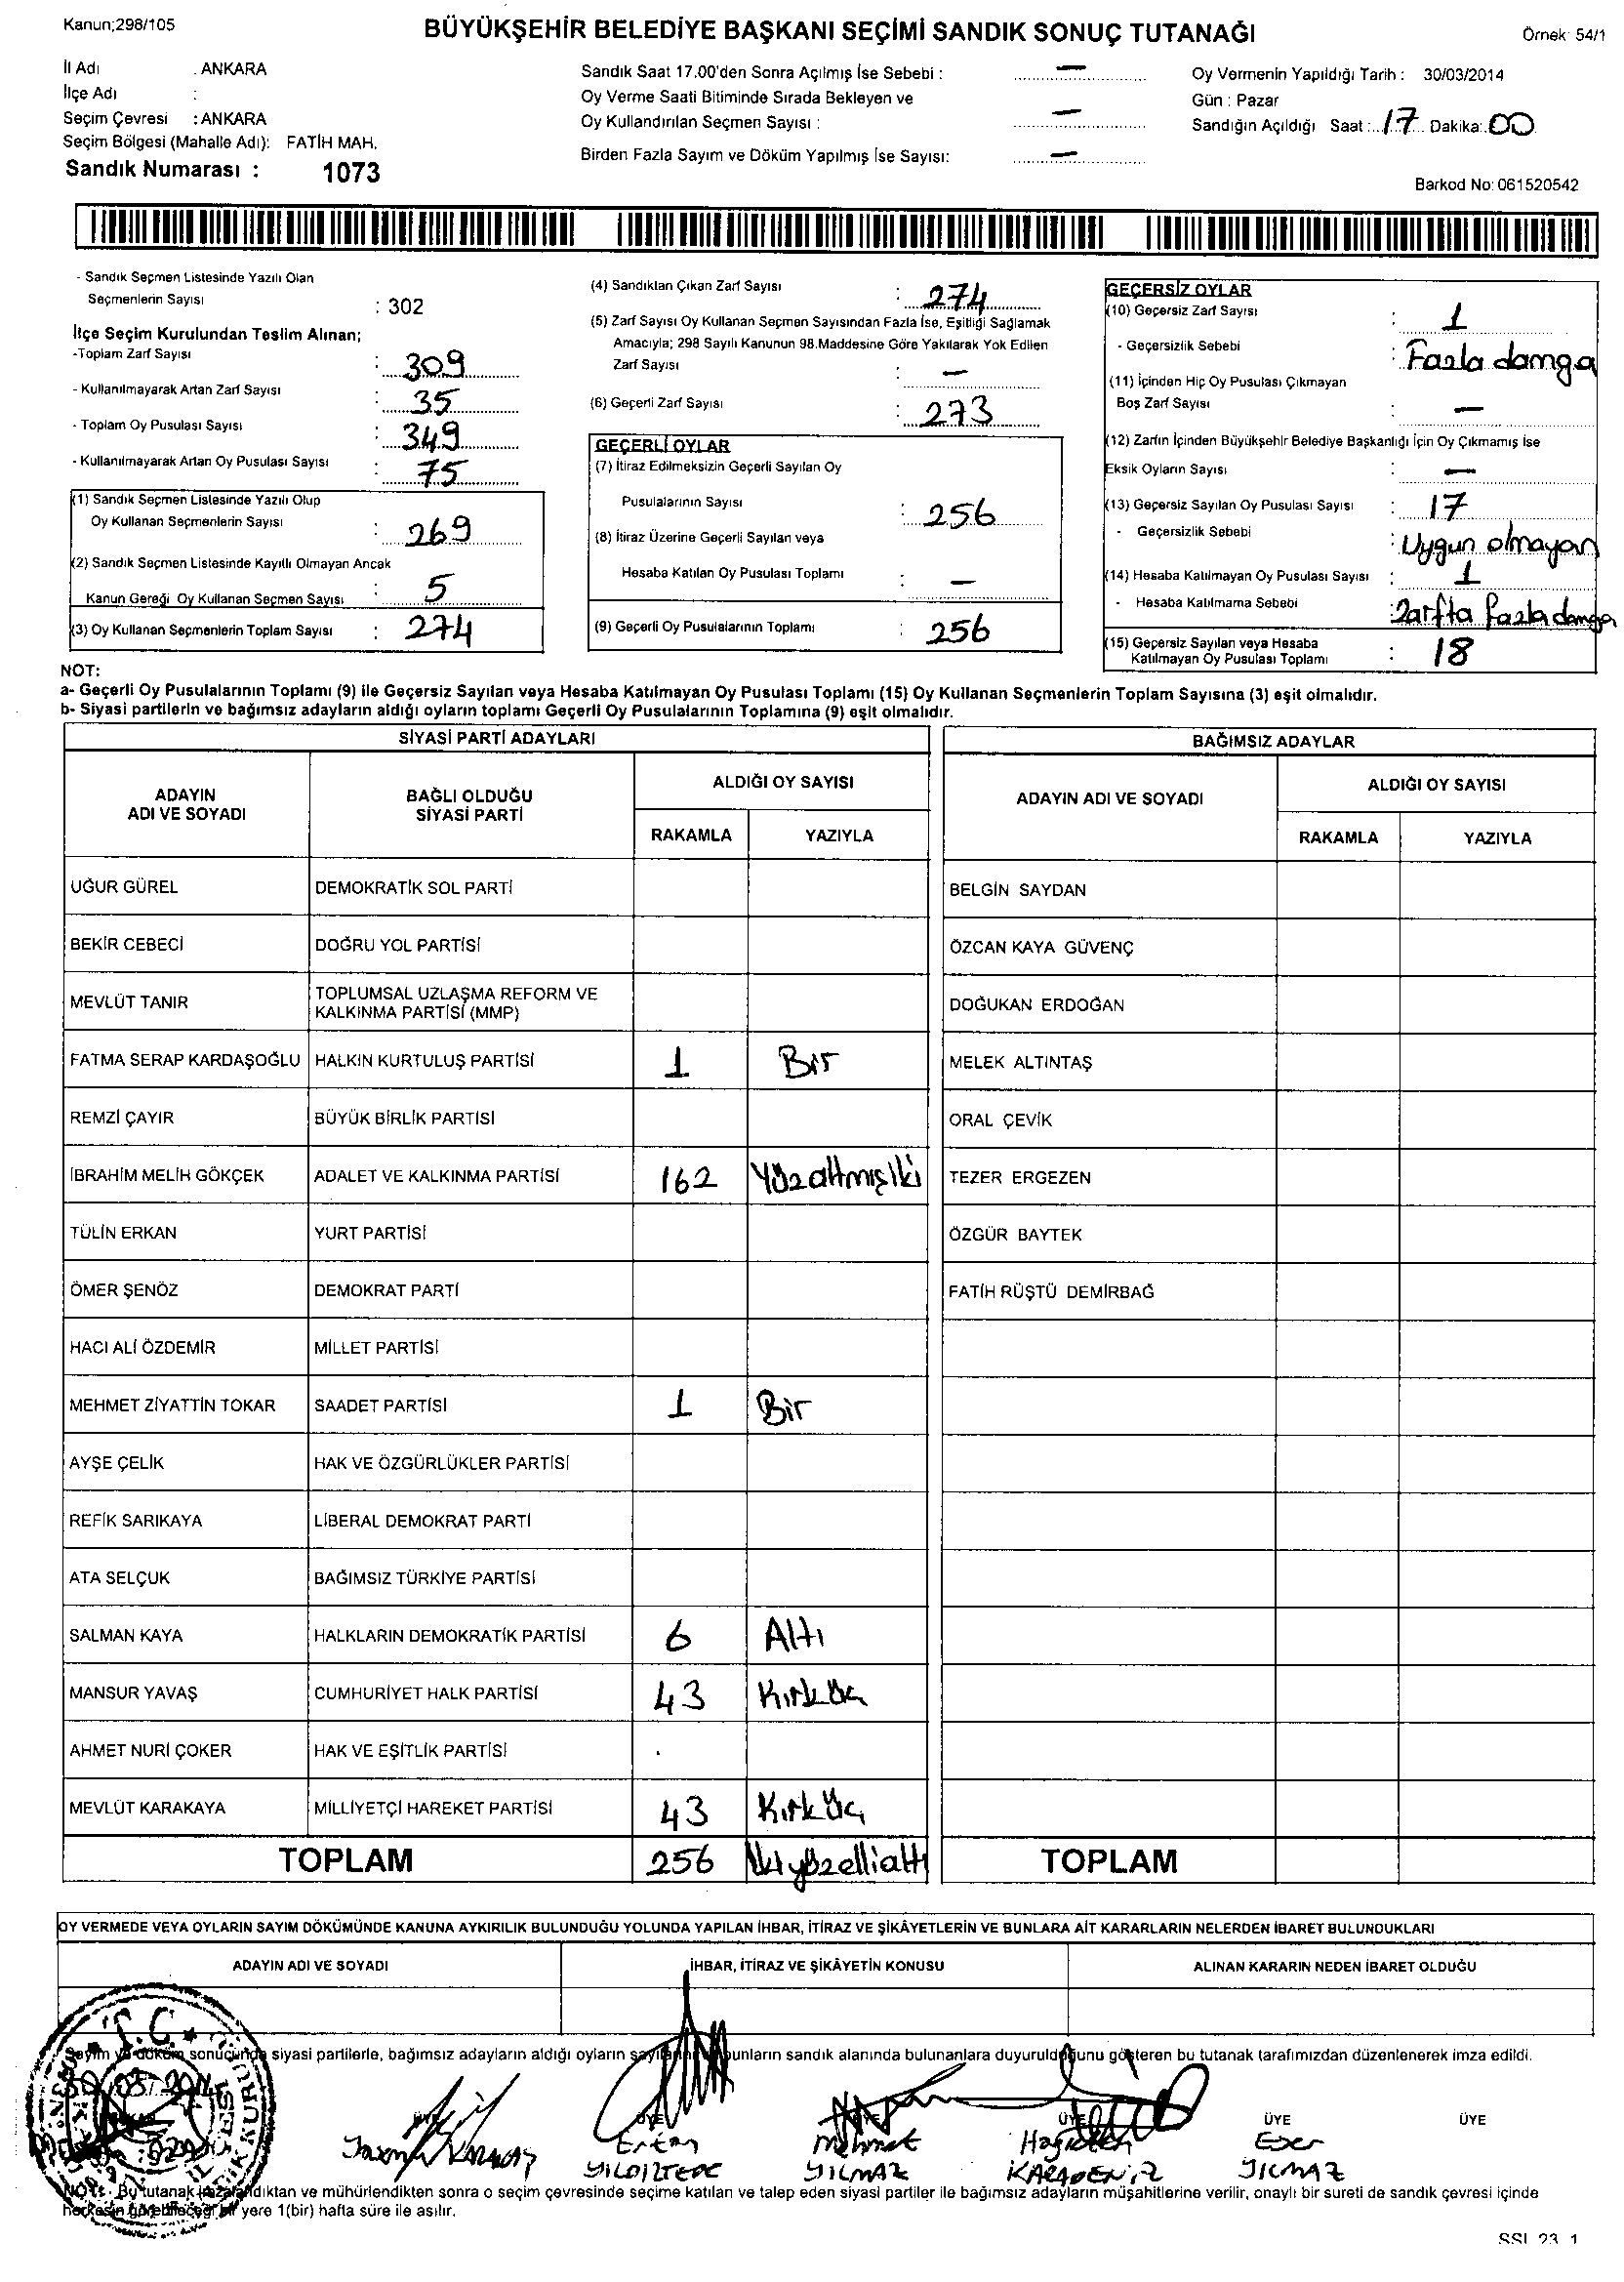 Kanun;298/105
BÜYÜKŞEHİR BELEDİYE BAŞKANI SEÇİMİ SANDIK SONUÇ TUTANAĞI
Örnek: 54/1
İl Adı : ANKARA
İlçe Adı :
Seçim Çevresi : ANKARA
Seçim Bölgesi (Mahalle Adı): FATİH MAH.
Sandık Numarası : 1073
Sandık Saat 17.00'den Sonra Açılmış İse Sebebi : —
Oy Verme Saati Bitiminde Sırada Bekleyen ve
Oy Kullandırılan Seçmen Sayısı : —
Birden Fazla Sayım ve Döküm Yapılmış İse Sayısı: —
Oy Vermenin Yapıldığı Tarih : 30/03/2014
Gün : Pazar
Sandığın Açıldığı Saat : 17 Dakika: 00
Barkod No: 061520542
- Sandık Seçmen Listesinde Yazılı Olan
Seçmenlerin Sayısı : 302
İlçe Seçim Kurulundan Teslim Alınan;
-Toplam Zarf Sayısı : 309
- Kullanılmayarak Artan Zarf Sayısı : 35
- Toplam Oy Pusulası Sayısı : 349
- Kullanılmayarak Artan Oy Pusulası Sayısı : 75
(1) Sandık Seçmen Listesinde Yazılı Olup
Oy Kullanan Seçmenlerin Sayısı : 269
(2) Sandık Seçmen Listesinde Kayıtlı Olmayan Ancak
Kanun Gereği Oy Kullanan Seçmen Sayısı : 5
(3) Oy Kullanan Seçmenlerin Toplam Sayısı : 274
(4) Sandıktan Çıkan Zarf Sayısı : 274
(5) Zarf Sayısı Oy Kullanan Seçmen Sayısından Fazla İse, Eşitliği Sağlamak
Amacıyla; 298 Sayılı Kanunun 98.Maddesine Göre Yakılarak Yok Edilen
Zarf Sayısı : —
(6) Geçerli Zarf Sayısı : 273
GEÇERLİ OYLAR
(7) İtiraz Edilmeksizin Geçerli Sayılan Oy
Pusulalarının Sayısı : 256
(8) İtiraz Üzerine Geçerli Sayılan veya
Hesaba Katılan Oy Pusulası Toplamı : —
(9) Geçerli Oy Pusulalarının Toplamı : 256
GEÇERSİZ OYLAR
(10) Geçersiz Zarf Sayısı : 1
- Geçersizlik Sebebi : Fazla damga
(11) İçinden Hiç Oy Pusulası Çıkmayan
Boş Zarf Sayısı : —
(12) Zarfın İçinden Büyükşehir Belediye Başkanlığı İçin Oy Çıkmamış İse
Eksik Oyların Sayısı : —
(13) Geçersiz Sayılan Oy Pusulası Sayısı : 17
- Geçersizlik Sebebi : Uygun olmayan
(14) Hesaba Katılmayan Oy Pusulası Sayısı : 1
- Hesaba Katılmama Sebebi : Zarfta fazla damga
(15) Geçersiz Sayılan veya Hesaba
Katılmayan Oy Pusulası Toplamı : 18
NOT:
a- Geçerli Oy Pusulalarının Toplamı (9) ile Geçersiz Sayılan veya Hesaba Katılmayan Oy Pusulası Toplamı (15) Oy Kullanan Seçmenlerin Toplam Sayısına (3) eşit olmalıdır.
b- Siyasi partilerin ve bağımsız adayların aldığı oyların toplamı Geçerli Oy Pusulalarının Toplamına (9) eşit olmalıdır.
SİYASİ PARTİ ADAYLARI
ADAYIN ADI VE SOYADI BAĞLI OLDUĞU SİYASİ PARTİ ALDIĞI OY SAYISI
RAKAMLA YAZIYLA
UĞUR GÜREL DEMOKRATİK SOL PARTİ
BEKİR CEBECİ DOĞRU YOL PARTİSİ
MEVLÜT TANIR TOPLUMSAL UZLAŞMA REFORM VE
KALKINMA PARTİSİ (MMP)
FATMA SERAP KARDAŞOĞLU HALKIN KURTULUŞ PARTİSİ 1 Bir
REMZİ ÇAYIR BÜYÜK BİRLİK PARTİSİ
İBRAHİM MELİH GÖKÇEK ADALET VE KALKINMA PARTİSİ 162 Yüzaltmışiki
TÜLİN ERKAN YURT PARTİSİ
ÖMER ŞENÖZ DEMOKRAT PARTİ
HACI ALİ ÖZDEMİR MİLLET PARTİSİ
MEHMET ZİYATTİN TOKAR SAADET PARTİSİ 1 Bir
AYŞE ÇELİK HAK VE ÖZGÜRLÜKLER PARTİSİ
REFİK SARIKAYA LİBERAL DEMOKRAT PARTİ
ATA SELÇUK BAĞIMSIZ TÜRKİYE PARTİSİ
SALMAN KAYA HALKLARIN DEMOKRATİK PARTİSİ 6 Altı
MANSUR YAVAŞ CUMHURİYET HALK PARTİSİ 43 Kırküç
AHMET NURİ ÇOKER HAK VE EŞİTLİK PARTİSİ
MEVLÜT KARAKAYA MİLLİYETÇİ HAREKET PARTİSİ 43 Kırküç
TOPLAM 256 İkiyüzelliAltı
BAĞIMSIZ ADAYLAR
ADAYIN ADI VE SOYADI ALDIĞI OY SAYISI
RAKAMLA YAZIYLA
BELGİN SAYDAN
ÖZCAN KAYA GÜVENÇ
DOĞUKAN ERDOĞAN
MELEK ALTINTAŞ
ORAL ÇEVİK
TEZER ERGEZEN
ÖZGÜR BAYTEK
FATİH RÜŞTÜ DEMİRBAĞ
TOPLAM
OY VERMEDE VEYA OYLARIN SAYIM DÖKÜMÜNDE KANUNA AYKIRILIK BULUNDUĞU YOLUNDA YAPILAN İHBAR, İTİRAZ VE ŞİKÂYETLERİN VE BUNLARA AİT KARARLARIN NELERDEN İBARET BULUNDUKLARI
ADAYIN ADI VE SOYADI İHBAR, İTİRAZ VE ŞİKÂYETİN KONUSU ALINAN KARARIN NEDEN İBARET OLDUĞU
T.C.
Sayım ve döküm sonucunda siyasi partilerle, bağımsız adayların aldığı oyların bunların sandık alanında bulunanlara duyurulduğunu gösteren bu tutanak tarafımızdan düzenlenerek imza edildi.
30/03/2014
ÜYE ÜYE ÜYE ÜYE
Ertan Mehmet Eser
YILDIZTEPE YILMAZ KARADENİZ YILMAZ
NOT: Bu tutanak imzalandıktan ve mühürlendikten sonra o seçim çevresinde seçime katılan ve talep eden siyasi partiler ile bağımsız adayların müşahitlerine verilir, onaylı bir sureti de sandık çevresi içinde
herkesin görebileceği bir yere 1(bir) hafta süre ile asılır.